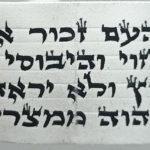 העם זכור א
חוי והיבוסי
ץ ולא ירא
הוה ממצרי